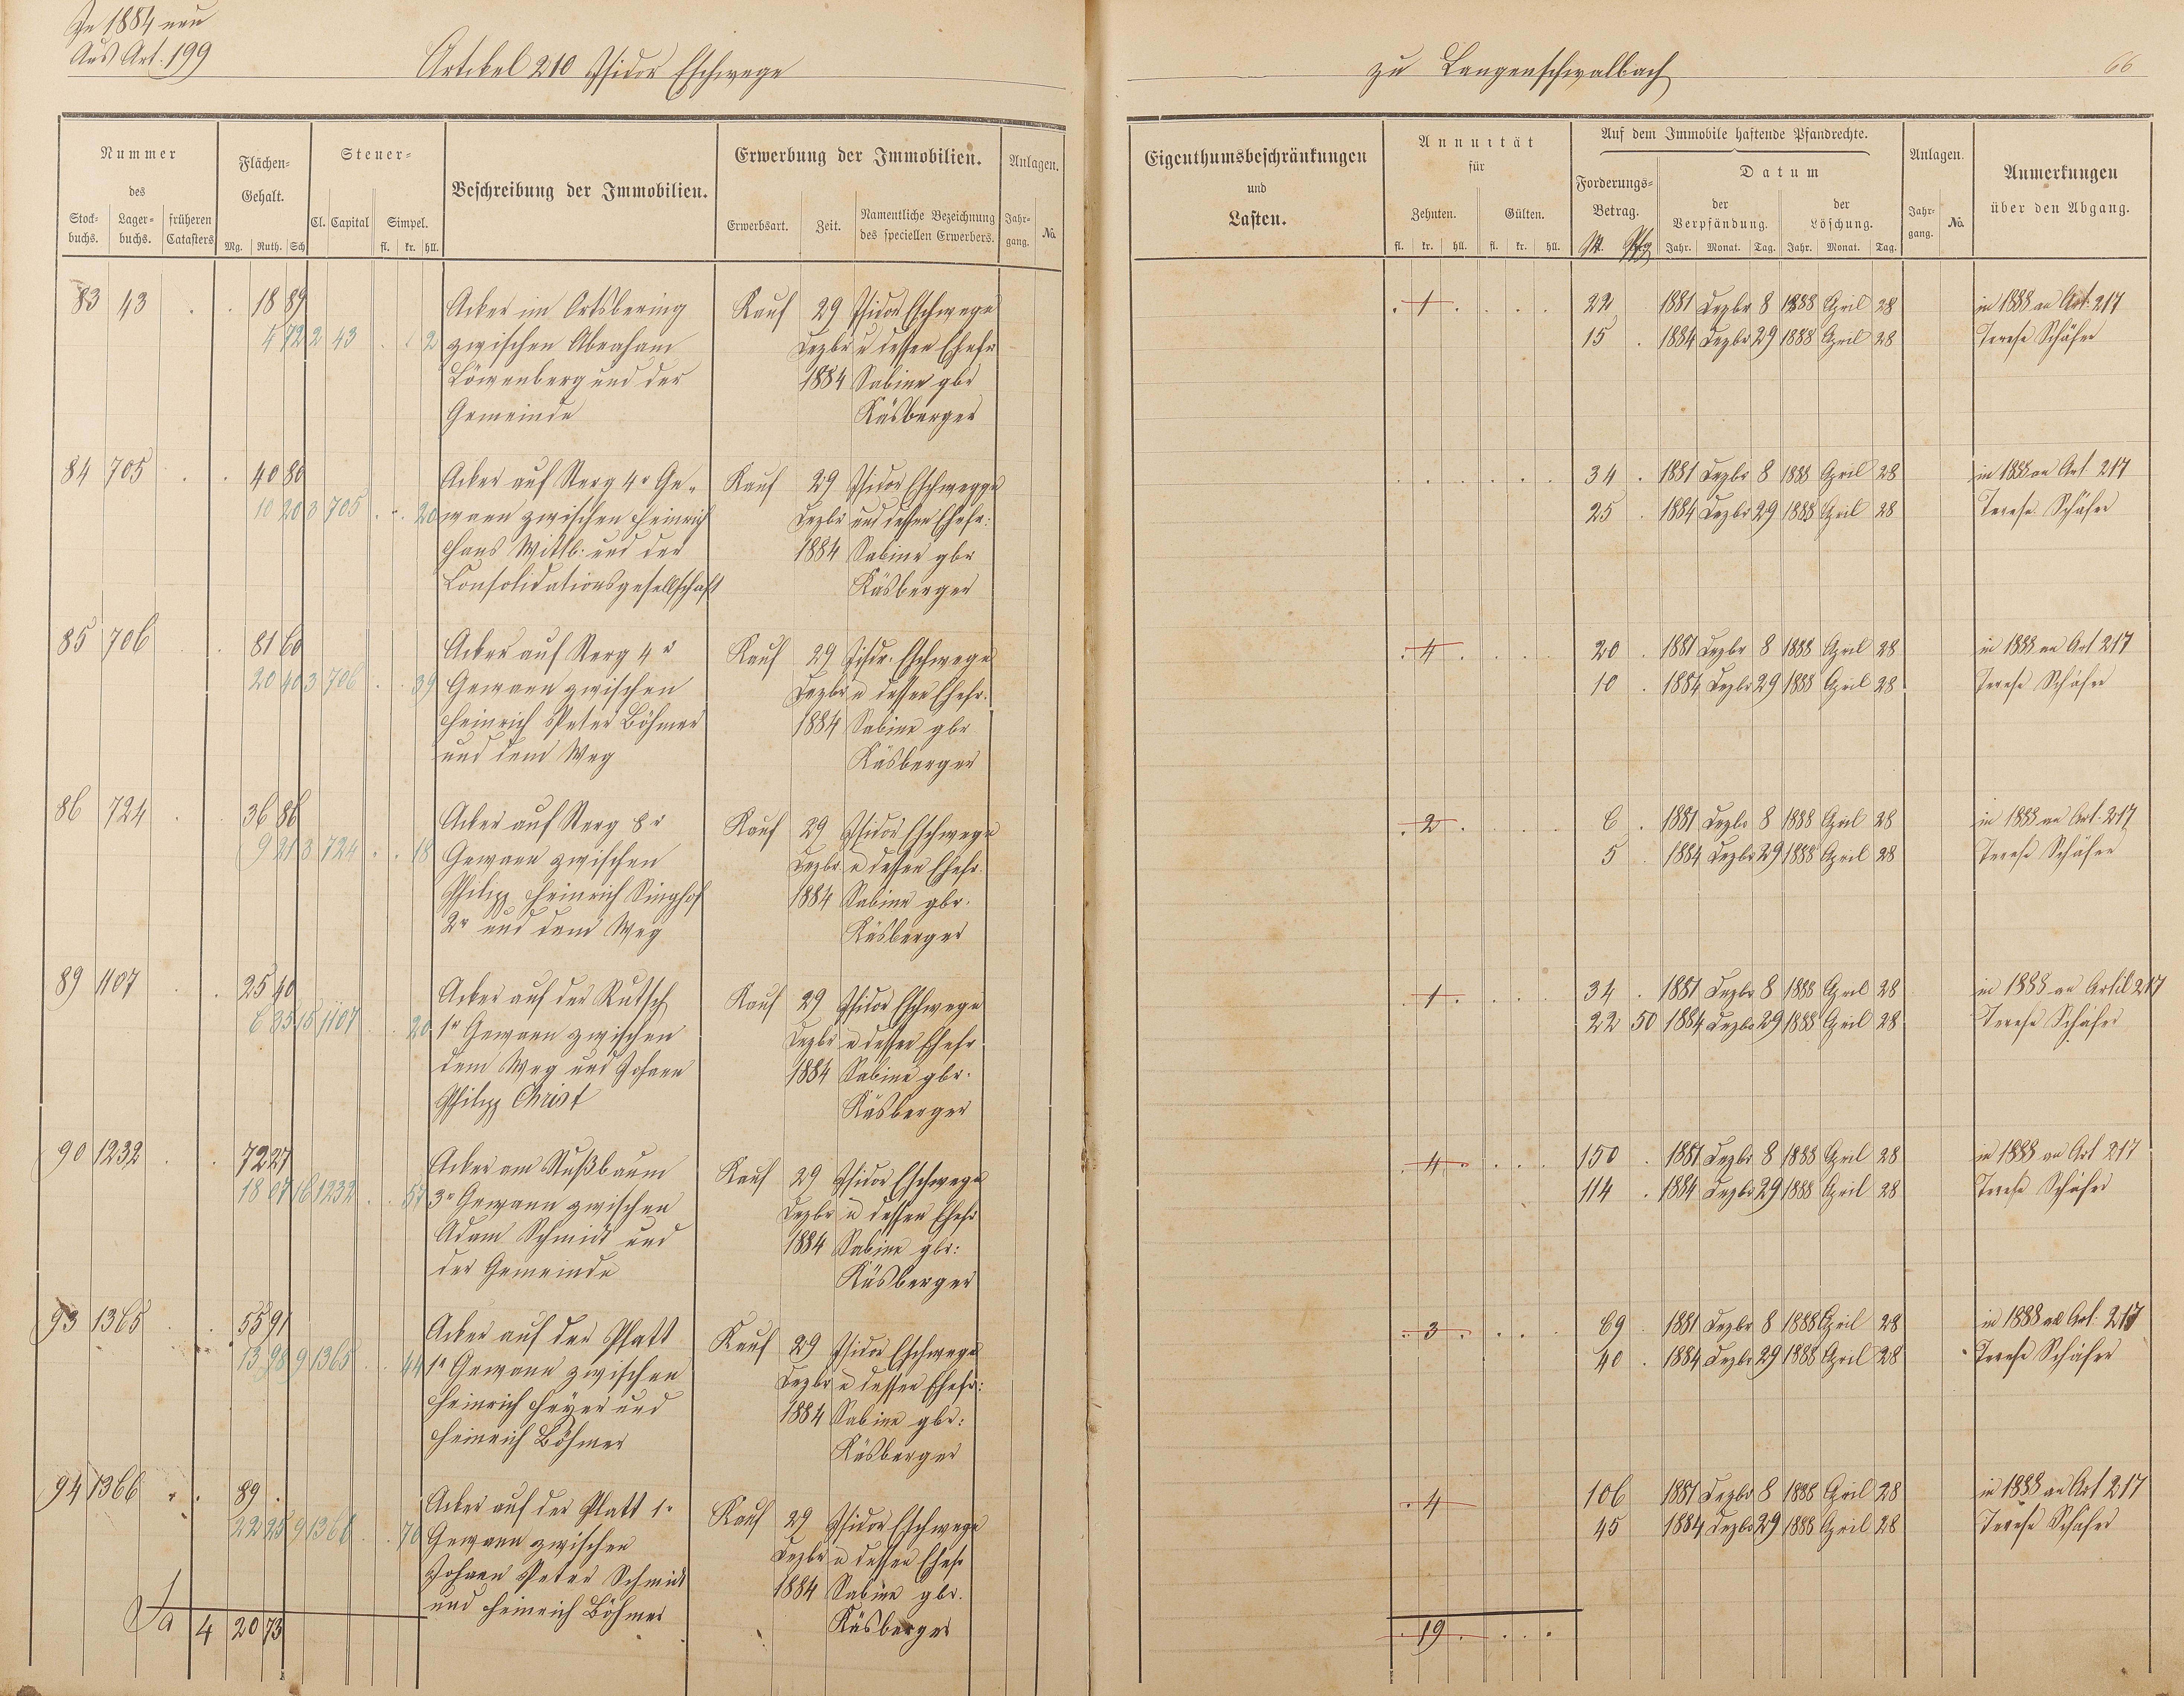 In 1884 neu
Aus Art. 199
Artikel 210 Isidor Eschwege
zu Langenschwalbach
66
Nummer
des
Stock-
buchs.
Lager-
buchs.
früheren
Catasters
Flächen-
Gehalt.
Mg. Ruth. Sch
Steuer-
Cl. Capital
Simpel.
fl. kr. hll.
Beschreibung der Immobilien.
Erwerbung der Immobilien.
Erwerbsart.
Zeit.
Namentliche Bezeichnung
des speciellen Erwerbers.
Anlagen.
Jahr-
gang.
No.
Eigenthumsbeschränkungen
und
Lasten.
Annuität
für
Zehnten.
Gülten.
fl. kr. hll. fl. kr. hll.
Auf dem Immobile haftende Pfandrechte.
Forderungs-
Betrag.
M. Pfg
Datum
der
Verpfändung.
Jahr. Monat. Tag.
der
Löschung.
Jahr. Monat. Tag.
Anlagen.
Jahr-
gang.
No.
Anmerkungen
über den Abgang.
83 43 . . 18 89 Acker im Ortsbering Kauf 29 Isidor Eschwege . 1 . . . . 22 1881 Dezbr 8 1888 April 28 in 1888 an Art: 217
4 72 2 43 . . 2 zwischen Abraham Dezbr u dessen Ehefr 15 . 1884 Dezbr 29 1888 April 28 Terese Schäfer
Löwenberg und der 1884 Sabine gbr
Gemeinde Käsberger
84 705 . . 40 80 Acker auf Berg 4r Ge- Kauf 29 Isidor Eschwege . . . . . . 34 . 1881 Dezbr 8 1888 April 28 in 1888 an Art. 217
10 20 3 705 . . 20 wann zwischen Heinrich Dezbr und dessen Ehefr: 25 . 1884 Dezbr 29 1888 April 28 Terese Schäfer
Hans Wittb. und der 1884 Sabine gbr
Consolidationsgesellschaft Käsberger
85 706 . . 81 60 Acker auf Berg 4r Kauf 29 Isidr. Eschwege . 4 . . . . 20 . 1881 Dezbr 8 1888 April 28 in 1888 an Art 217
20 40 3 706 . . 39 Gewann zwischen Dezbr u dessen Ehefr. 10 . 1884 Dezbr 29 1888 April 28 Terese Schäfer
Heinrich Peter Böhmer 1884 Sabine gbr
und dem Weg Käsberger
86 724 . . 36 86 Acker auf Berg 8r Kauf 29 Isidor Eschwege . 2 . . . . 6 . 1881 Dezbr 8 1888 April 28 in 1888 an Art. 217
9 21 3 724 . . 18 Gewann zwischen Dezbr u dessen Ehefr. 5 . 1884 Dezbr 29 1888 April 28 Terese Schäfer
Philipp Heinrich Singhof 1884 Sabine gbr.
2r und dem Weg Käsberger
89 1107 . . 25 40 Acker auf der Rutsch Kauf 29 Isidor Eschwege . 1 . . . . 34 . 1881 Dezbr 8 1888 April 28 in 1888 an Artil 217
6 35 15 1107 . . 20 1r Gewann zwischen Dezbr u dessen Ehefr 22 50 1884 Dezbr 29 1888 April 28 Terese Schäfer
dem Weg und Johann 1884 Sabine gbr.
Philipp Christ Käsberger
90 1232 . . 72 27 Acker am Nußbaum Kauf 29 Isidor Eschwege . 4 . . . . 150 . 1881 Dezbr 8 1888 April 28 in 1888 an Art 217
18 07 16 1232 . . 57 3r Gewann zwischen Dezbr u dessen Ehefr 114 . 1884 Dezbr 29 1888 April 28 Terese Schäfer
Adam Schmidt und 1884 Sabine gbr:
der Gemeinde Käsberger
93 1365 . . 55 91 Acker auf der Platt Kauf 29 Isidor Eschwege . 3 . . . . 69 . 1881 Dezbr 8 1888 April 28 in 1888 an Art: 217
13 98 9 1365 . . 44 1r Gewann zwischen Dezbr u dessen Ehefr: 40 . 1884 Dezbr 29 1888 April 28 Terese Schäfer
Heinrich Heyer und 1884 Sabine gbr:
Heinrich Böhmer Käsberger
94 1366 . . 89 . Acker auf der Platt 1r Kauf 29 Isidor Eschwege . 4 106 1881 Dezbr 8 1888 April 28 in 1888 an Art 217
22 25 9 1366 . . 70 Gewann zwischen Dezbr u dessen Ehefr 45 1884 Dezbr 29 1888 April 28 Terese Schäfer
Johann Peter Schmidt 1884 Sabine gbr.
und Heinrich Böhmer Käsberger
Sa 4 20 73 . 19 . . . .